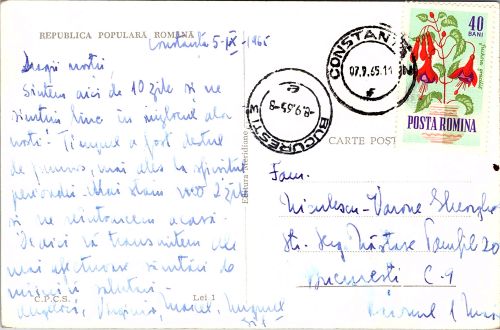 REPUBLICA POPULARĂ ROMÎNĂ
Constanța 5-IX-1965
Dragii noștri,
Sîntem aici de 10 zile și ne
simțim bine în mijlocul
Timpul a fost destul
de frumos, mai ales la sfîrșitul
perioadei. Mai stăm vreo 2 zile
și ne reîntoarcem acasă.
De aici vă transmitem cele
mai afectuoase
salutări.
Virginia, Marcel,
C.P.C.S.
Lei 1
Editura Meridiane
CARTE POȘTALĂ
CONSTANȚA
07.9.65.11
BUCUREȘTI
8.9.65-8
40
BANI
Fuchsia gracilis
POSTA ROMINA
Fam.
Niculescu-Varone Gheorghe
Str. Serg. Năstase Pamfil 20
București C.1
Raionul 1 Mai